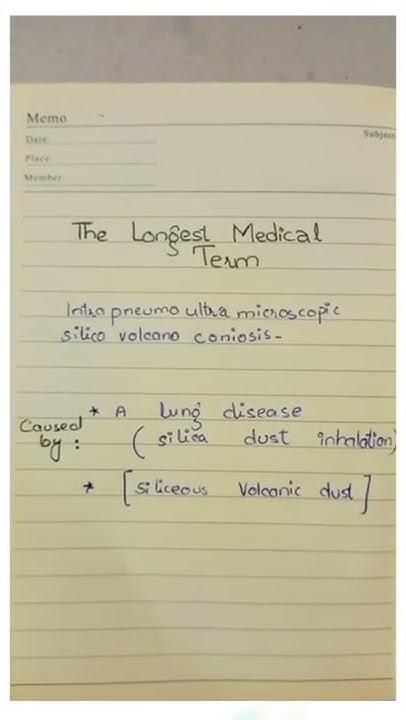 Memo
Subject
Date
Place
Member
The Longest Medical
Term
Intra pneumo ultra microscopic
silico volcano coniosis-
* A lung disease
Caused by: (silica dust inhalation)
* [siliceous Volcanic dust]